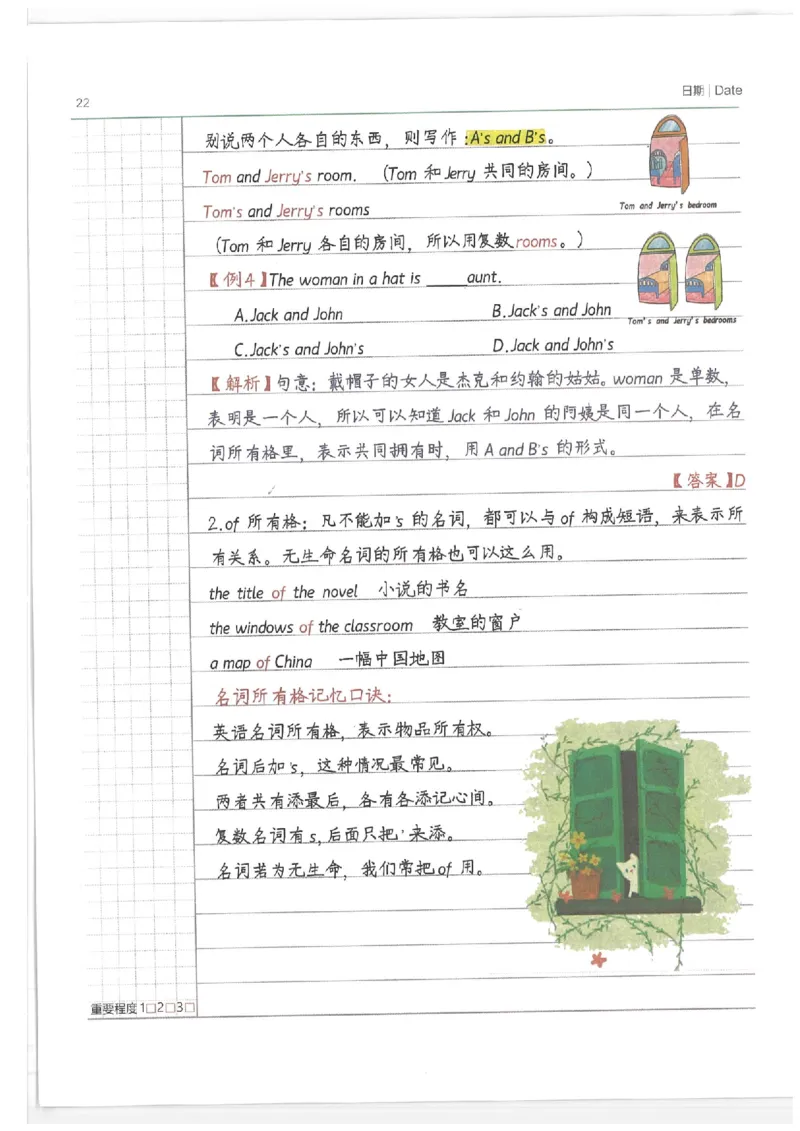 22
日期 | Date
别说两个人各自的东西，则写作：A's and B's。
Tom and Jerry's room. （Tom 和 Jerry 共同的房间。）
Tom and Jerry's bedroom
Tom's and Jerry's rooms
（Tom 和 Jerry 各自的房间，所以用复数rooms。）
【例4】The woman in a hat is ____ aunt.
A.Jack and John B.Jack's and John
Tom's and Jerry's bedrooms
C.Jack's and John's D.Jack and John's
【解析】句意：戴帽子的女人是杰克和约翰的姑姑。woman 是单数，
表明是一个人，所以可以知道 Jack 和 John 的阿姨是同一个人，在名
词所有格里，表示共同拥有时，用 A and B's 的形式。
【答案】D
2.of 所有格：凡不能加's 的名词，都可以与 of 构成短语，来表示所
有关系。无生命名词的所有格也可以这么用。
the title of the novel 小说的书名
the windows of the classroom 教室的窗户
a map of China 一幅中国地图
名词所有格记忆口诀：
英语名词所有格，表示物品所有权。
名词后加's，这种情况最常见。
两者共有添最后，各有各添记心间。
复数名词有s，后面只把'来添。
名词若为无生命，我们常把of 用。
重要程度 1□2□3□